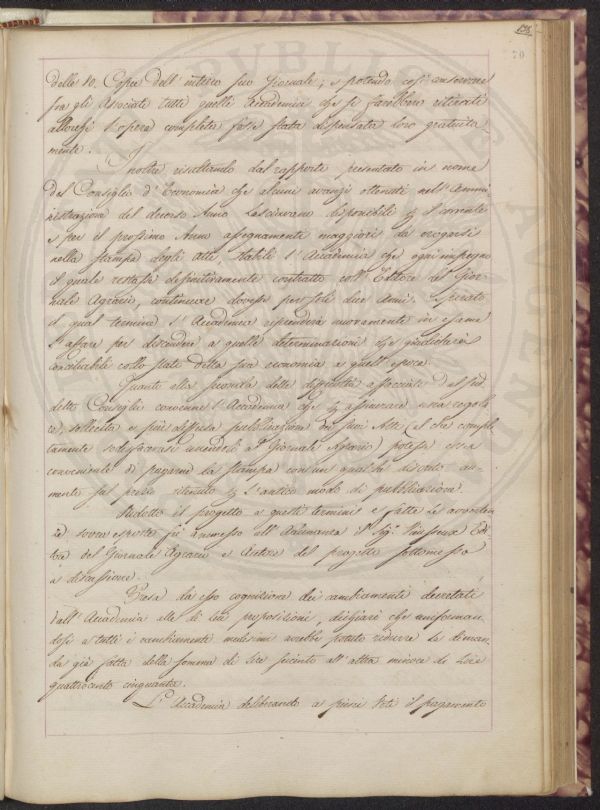 138
70
delle 10. Copie dell' intero suo Giornale; e potendo così conservarsi
fra gli Associati tutte quelle Accademie che si sarebbero ritirate
allorchè l'opera completa fosse stata dispensata loro gratuita-
mente.
Inoltre risultando dal rapporto presentato in nome
del Consiglio d' Economia che alcuni avanzi ottenuti nell' Ammi-
nistrazione del decorso Anno lasciavano disponibili p il corrente
e per il prossimo Anno assegnamenti maggiori da erogarsi
nella stampa degli Atti, stabilì l'Accademia che ogni impegno
il quale restasse definitivamente contratto coll' Editore del Gior-
nale Agrario, continuare dovesse per soli due Anni. Spirato
il qual termine l' Accademia riprenderà nuovamente in esame
l'affare per discendere a quelle determinazioni che giudicherà
conciliabili collo stato della sua economia a quell' epoca.
Quanto alla seconda delle difficoltà affacciate dal sud-
detto Consiglio convenne l'Accademia che p assicurare una regola-
re, sollecita e più diffusa pubblicazione dei suoi Atti (al che comple-
tamente sodisfacevasi unendoli al Giornale Agrario) potesse essere
conveniente di pagarne la stampa con un qualche discreto au-
mento sul prezzo ritenuto p l'antico modo di pubblicazione.
Ridotto il progetto a questi termini e fatte le avverten-
ze sovra esposte fù ammesso all' Adunanza il Sig. Vieusseux Edi-
tore del Giornale Agrario e Autore del progetto sottomesso
a discussione.
Presa da esso cognizione dei cambiamenti decretati
dall' Accademia alle di lui proposizioni, dichiarò che uniforman-
dosi a tutti i cambiamenti medesimi avrebbe potuto ridurre la diman-
da già fatta della somma di Lire seicento all' altra minore di Lire
quattrocento cinquanta.
L' Accademia deliberando a pieni Voti il pagamento